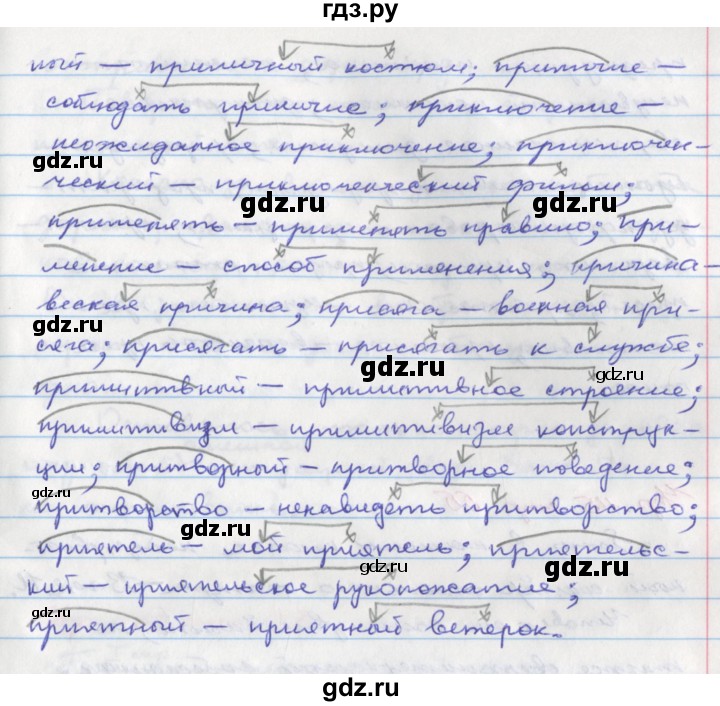 гдз.ру
ный – приличный костюм; приличие –
соблюдать приличие; приключение –
неожиданное приключение; приключен-
gdz.ru
ческий – приключенческий фильм;
gdz.ru gdz.ru
применять – применять правило; при-
менение – способ применения; причина –
веская причина; присяга – военная при-
gdz.ru
сяга; присягать – присягать к службе;
gdz.ru gdz.ru
примитивный – примитивное строение;
примитивизм – примитивизм конструк-
ции; притворный – притворное поведение;
gdz.ru
притворство – ненавидеть притворство;
gdz.ru
приятель – мой приятель; приятельс-
gdz.ru gdz.ru
кий – приятельское рукопожатие;
приятный – приятный ветерок.
gdz.ru